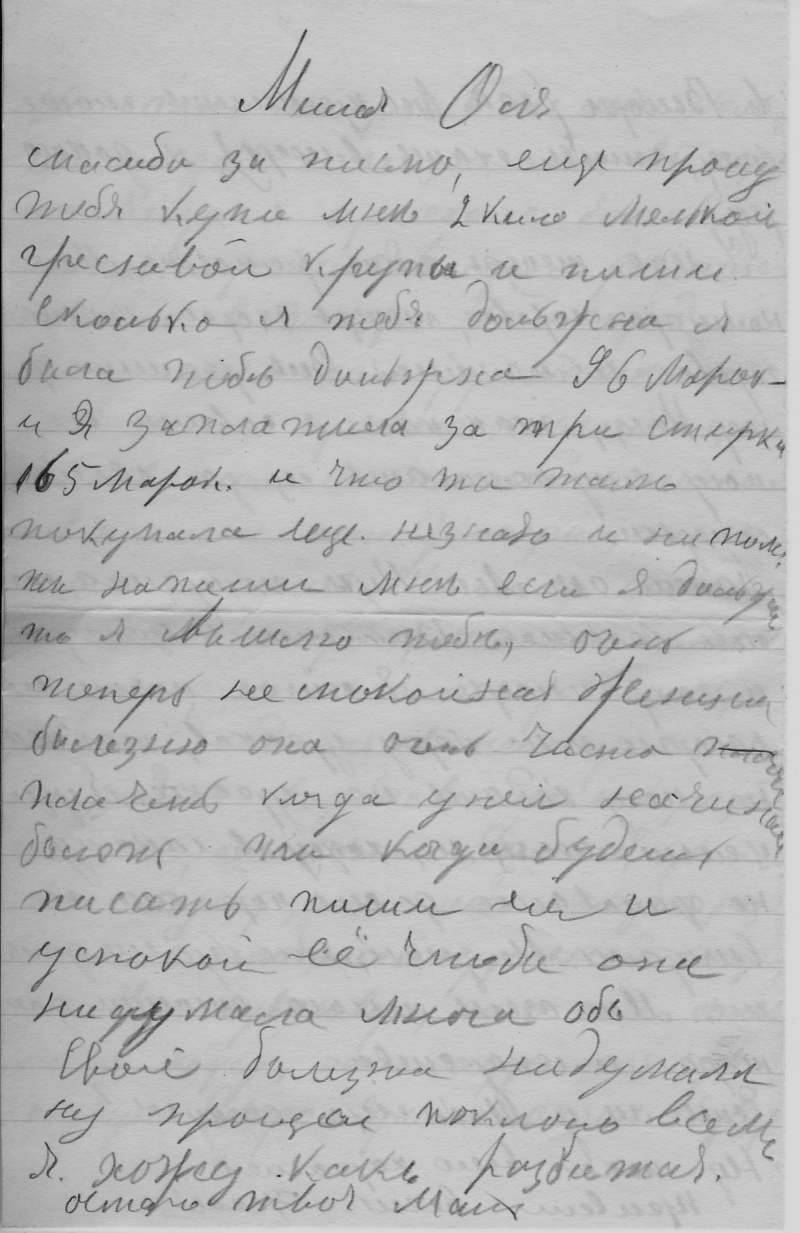 Милая Оля
спасибо за писмо, еще прошу
тебя купи мнѣ 2 кило мелкой
гресневой крупы и пиши
сколько я тебя должна я
была тебѣ должна 96 Марок
и я заплатила за три стирки
165 марок. и что ти там
покупала еще. незнаю и ни пом
ти напиши мнѣ если я должна
то я вышлю тебѣ, очень
теперь не спокойная Женщина
болезню она очень часто
плачеть когда уней начинает
болеть ти когда будешь
писать пиши ей и
успокой её чтоби она
нидумала многа объ
своей болезни нидумала
ну прощай поклонь всемь
я. хожу какь разбитая.
остаюсь твоя Мама